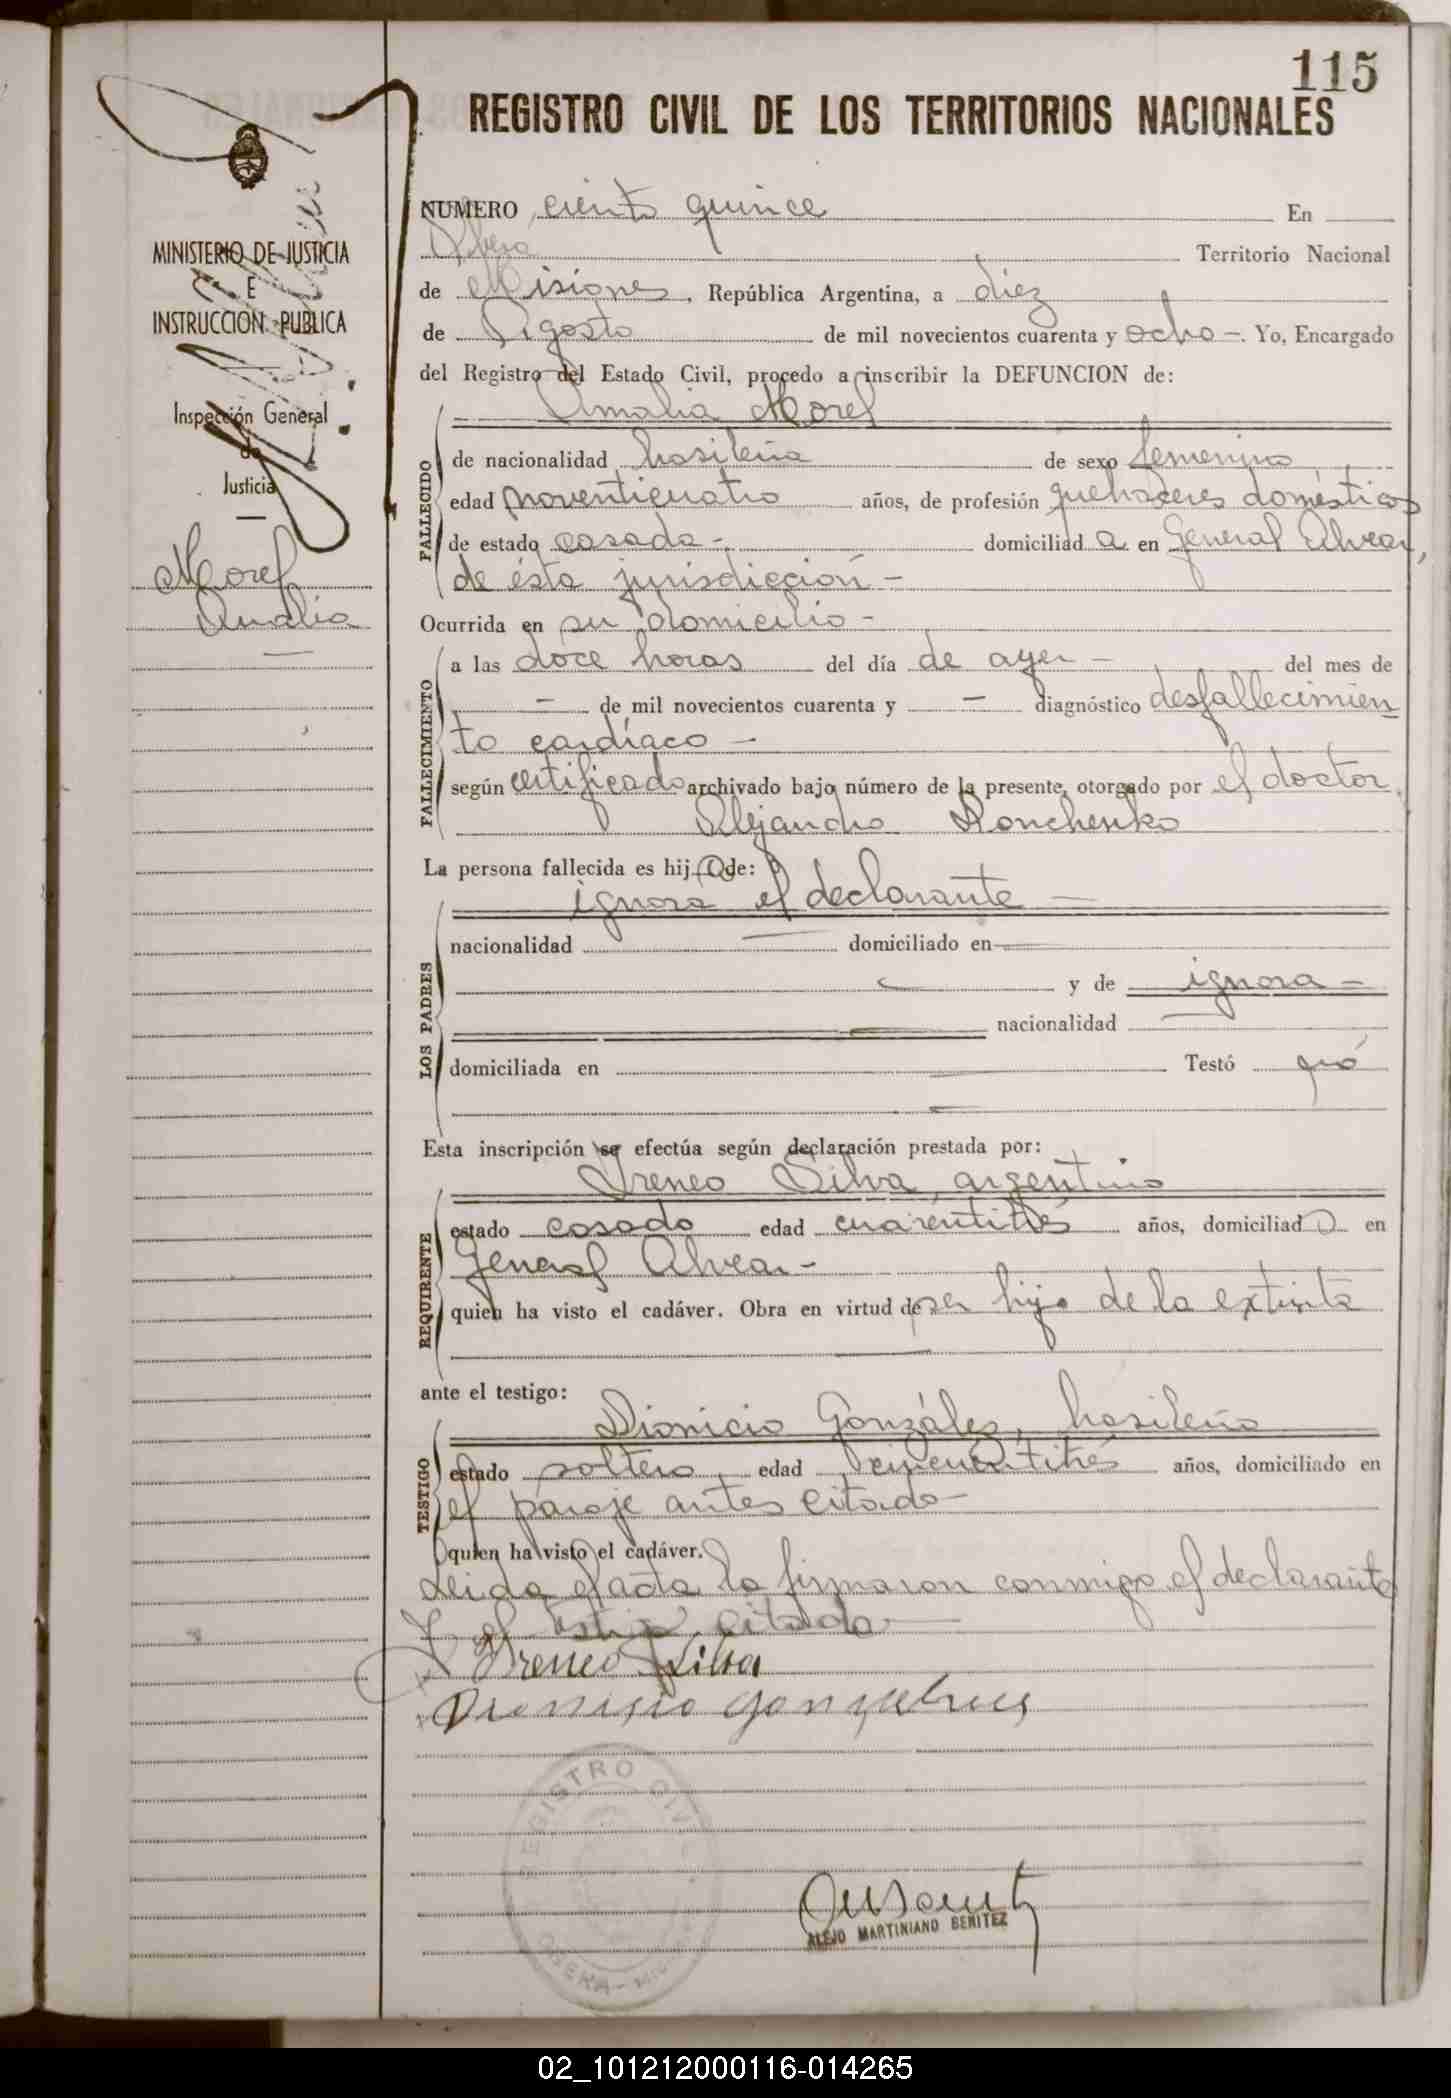 115
REGISTRO CIVIL DE LOS TERRITORIOS NACIONALES
MINISTERIO DE JUSTICIA
E
INSTRUCCION PUBLICA
Inspección General
de
Justicia
Morel
Amalia
NUMERO ciento quince En
Oberá Territorio Nacional
de Misiones, República Argentina, a diez
de Agosto de mil novecientos cuarenta y ocho -. Yo, Encargado
del Registro del Estado Civil, procedo a inscribir la DEFUNCION de:
Amalia Morel
FALLECIDO
de nacionalidad brasileña de sexo femenino
edad noventicuatro años, de profesión quehaceres domésticos
de estado casada - domiciliad a en General Alvear,
de ésta jurisdicción -
Ocurrida en su domicilio -
FALLECIMIENTO
a las doce horas del día de ayer - del mes de
- de mil novecientos cuarenta y - diagnóstico desfallecimien
to cardíaco -
según certificado archivado bajo número de la presente, otorgado por el doctor
Alejandro Donchenko
La persona fallecida es hij a de:
LOS PADRES
ignora el declarante -
nacionalidad - domiciliado en -
- y de ignora -
- nacionalidad -
domiciliada en - Testó
-
Esta inscripción se efectúa según declaración prestada por:
REQUIRENTE
Ireneo Silva, argentino
estado casado edad cuarentitrés años, domiciliad o en
General Alvear -
quien ha visto el cadáver. Obra en virtud de ser hijo de la extinta
ante el testigo:
TESTIGO
Dionicio Gonzáles, brasileño
estado soltero, edad cincuentitrés años, domiciliado en
el paraje antes citado -
quien ha visto el cadáver.
Leida el acta la firmaron conmigo el declarante
y el testigo citado -
Ireneo Silva
Dionisio
REGISTRO CIVIL
OBERA - MISIONES
ALEJO MARTINIANO BENITEZ
02_101212000116-014265